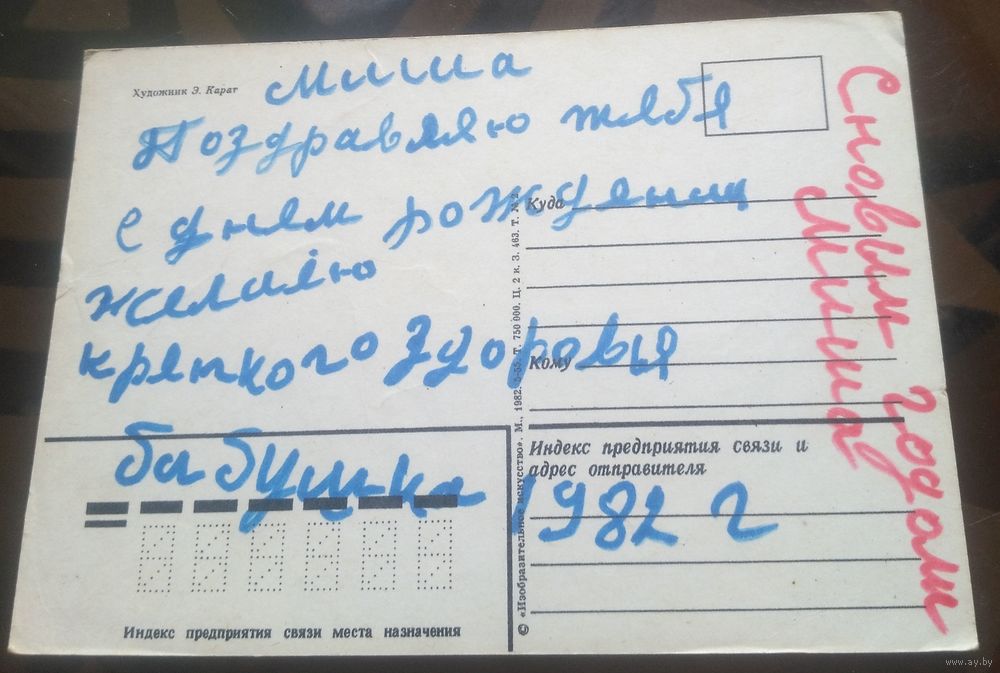 Художник Э. Карат
Миша
Поздравляю тябя
с днем рождения
желаию
крепкого здоровья
бабушка 1982 г
С новым годом
Миша
Куда
Кому
Индекс предприятия связи и
адрес отправителя
Индекс предприятия связи места назначения
© «Изобразительное искусство». М., 1982. 5-55. Т. 750 000. Ц. 2 к. З. 463. Т. № 2
www.ay.by